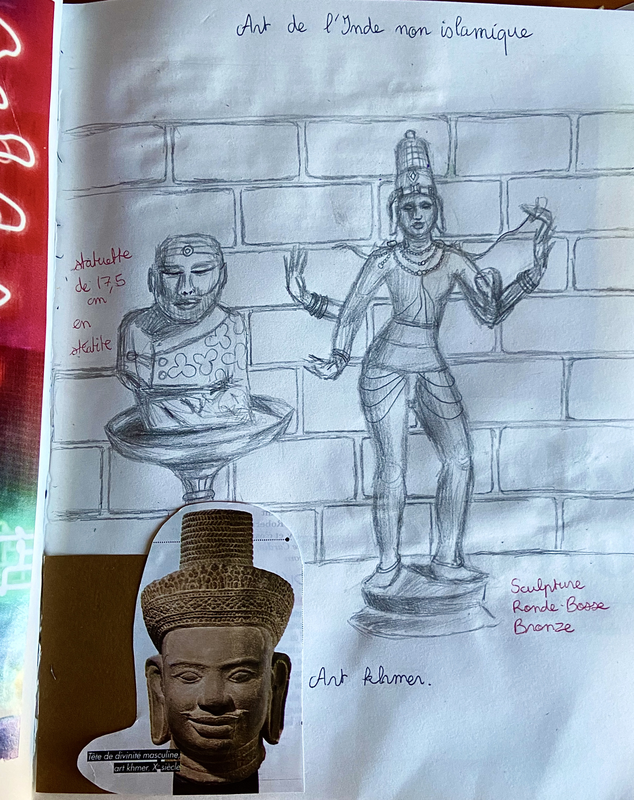 Art de l'Inde non islamique
statuette
de 17,5
cm
en
stéatite
Sculpture
Ronde-Bosse
Bronze
Art khmer.
Tête de divinité masculine,
art khmer. Xe siècle